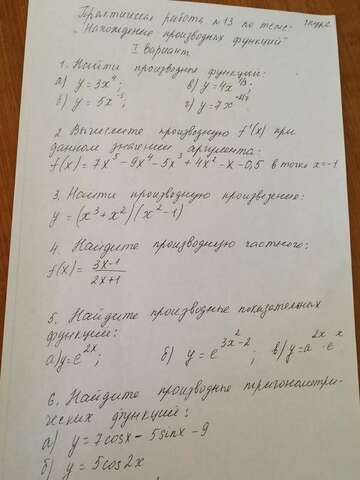 Практическая работа №13 по теме:
"Нахождение производных функций"
I Вариант
1. Найти производные функции:
а) y = 3x⁴; в) y = 4x^1/3;
б) y = 5x^-3; г) y = 7x
2. Вычислите производную f'(x) при
данном значении аргумента:
f(x) = 7x⁵ - 9x⁴ - 5x³ + 4x² - x - 0,5 в точке x = -1
3. Найти производную произведение:
y = (x³ + x²)(x² - 1)
4. Найдите производную частного:
f(x) = 3x-1
2x+1
5. Найдите производные показательных
функций:
а) y = e^2x; б) y = e^3x²-2; в) y = a^2x · e^x
6. Найдите производные тригонометри-
ческих функций:
а) y = 7cosx - 5sinx - 9
б) y = 5cos2x